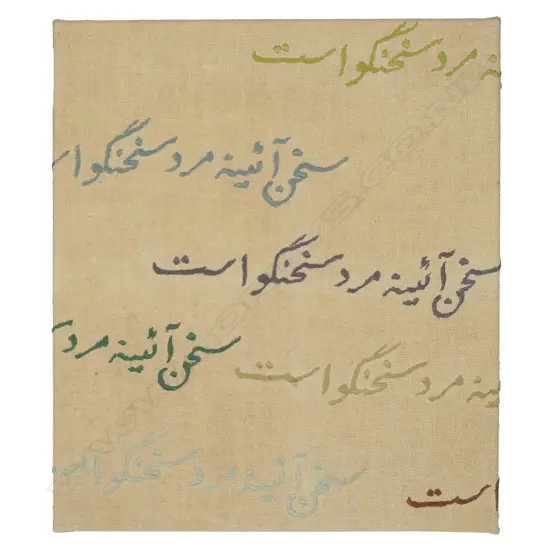 ینه مرد سخنگو است
سخن آئینه مرد سخنگو ا
سخن آئینه مرد سخنگو است
سخن آئینه مرد
ینه مرد سخنگو است
سخن آئینه مرد سخنگو است
است